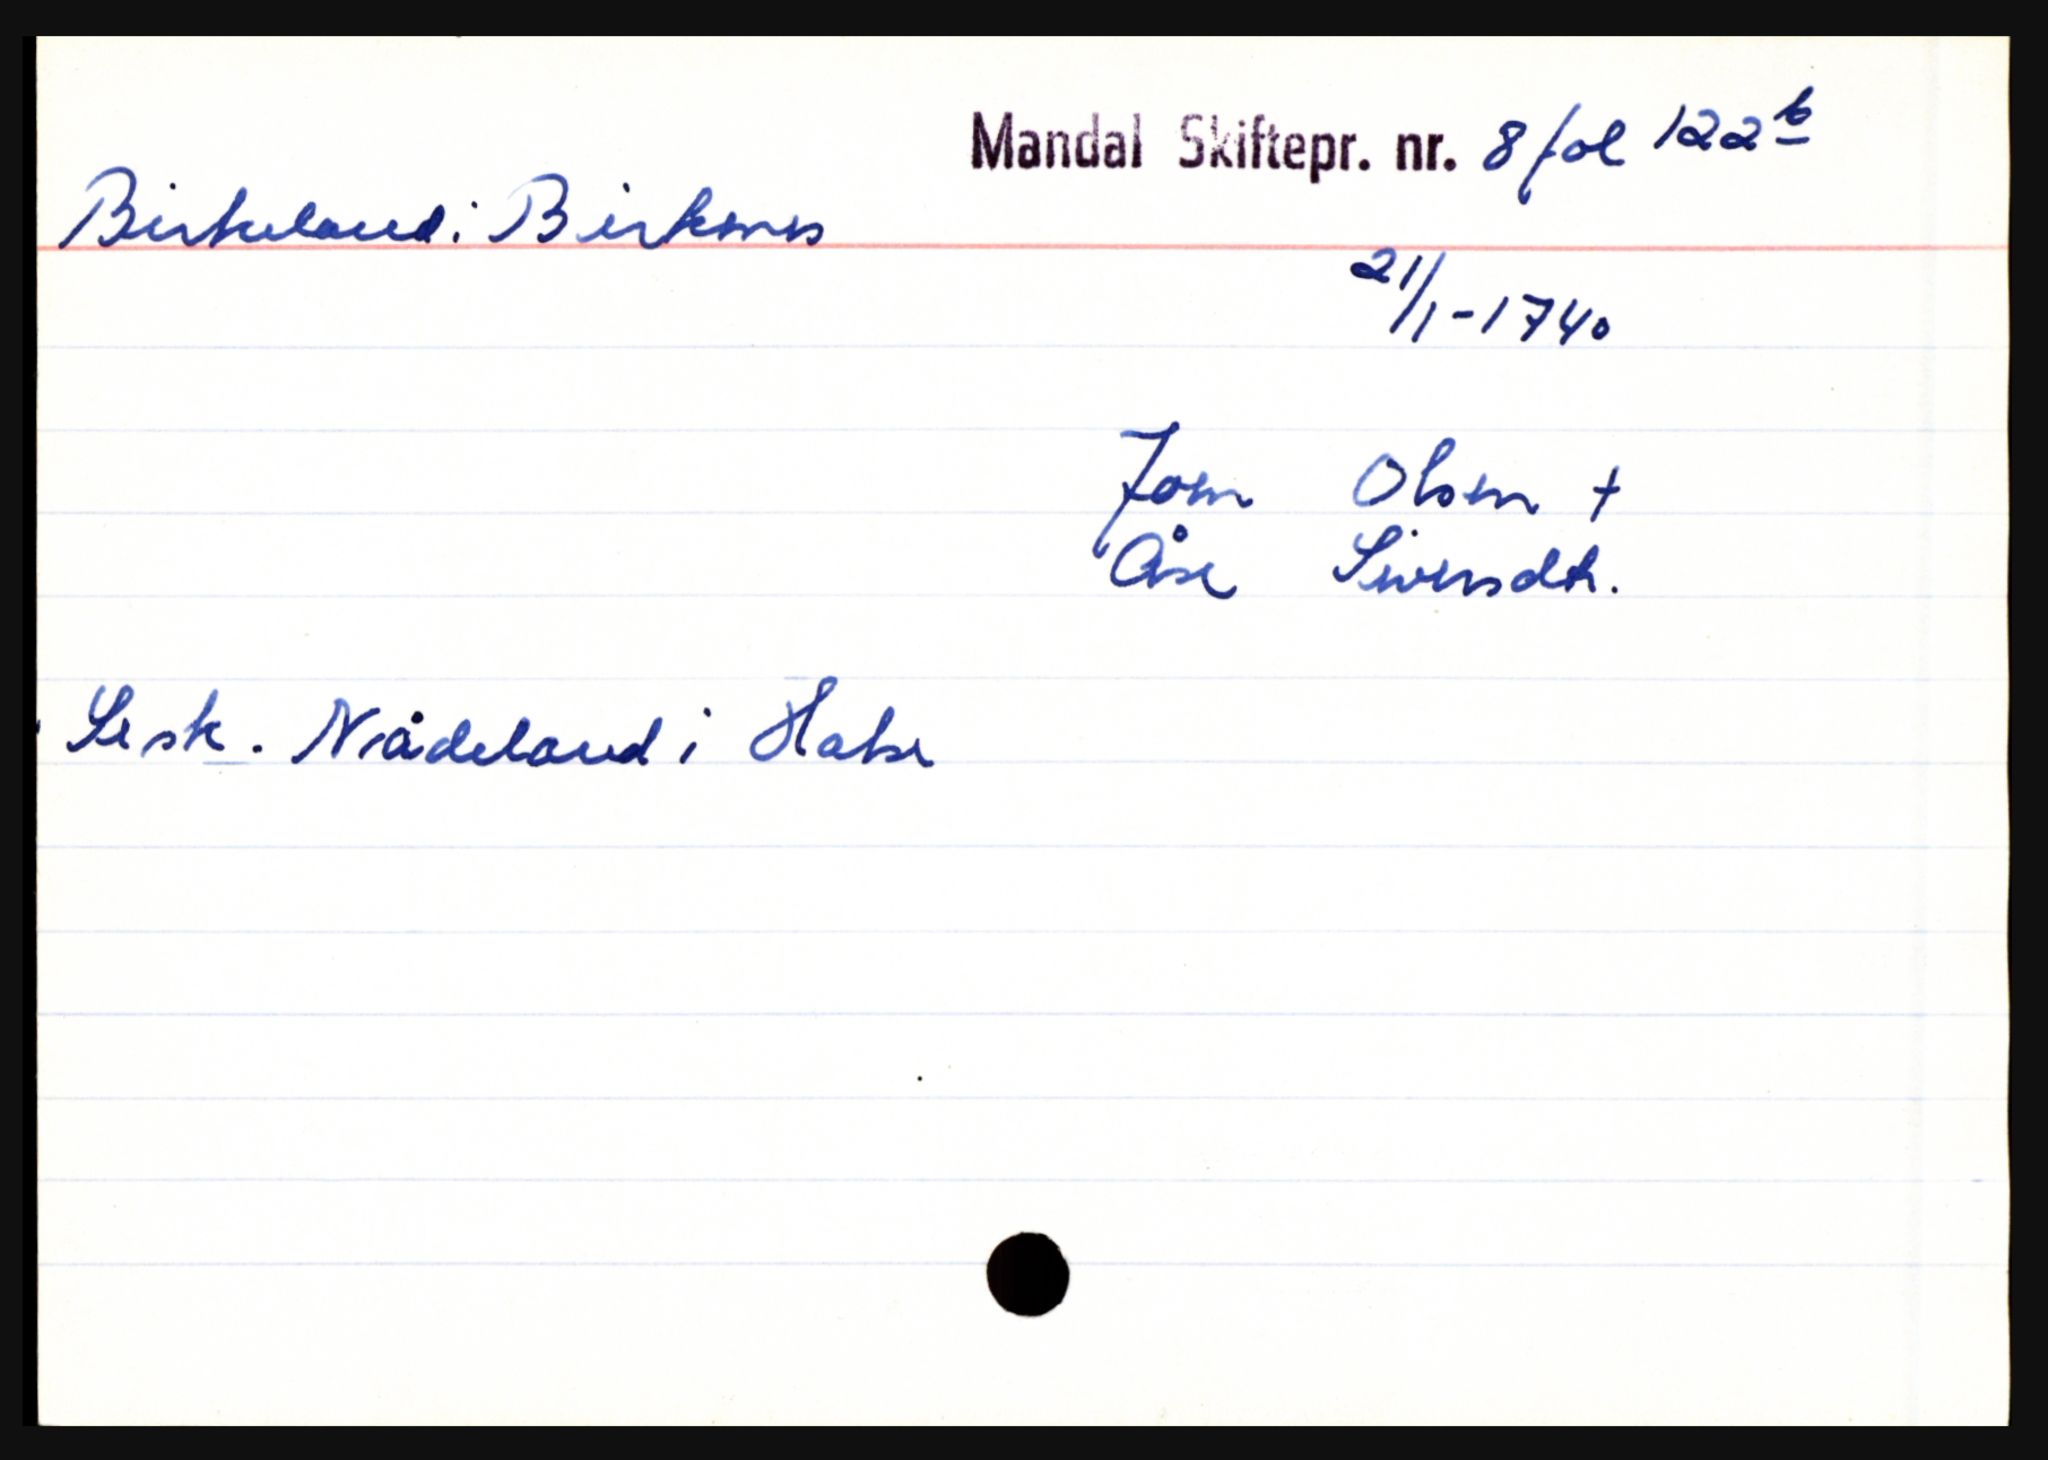 Mandal Skiftepr. nr. 8 fol 122b
Birkeland i Birkenes
21/1-1740
Joen Olsen +
Åse Siversdtr.
Se sk. Nådeland i Halse